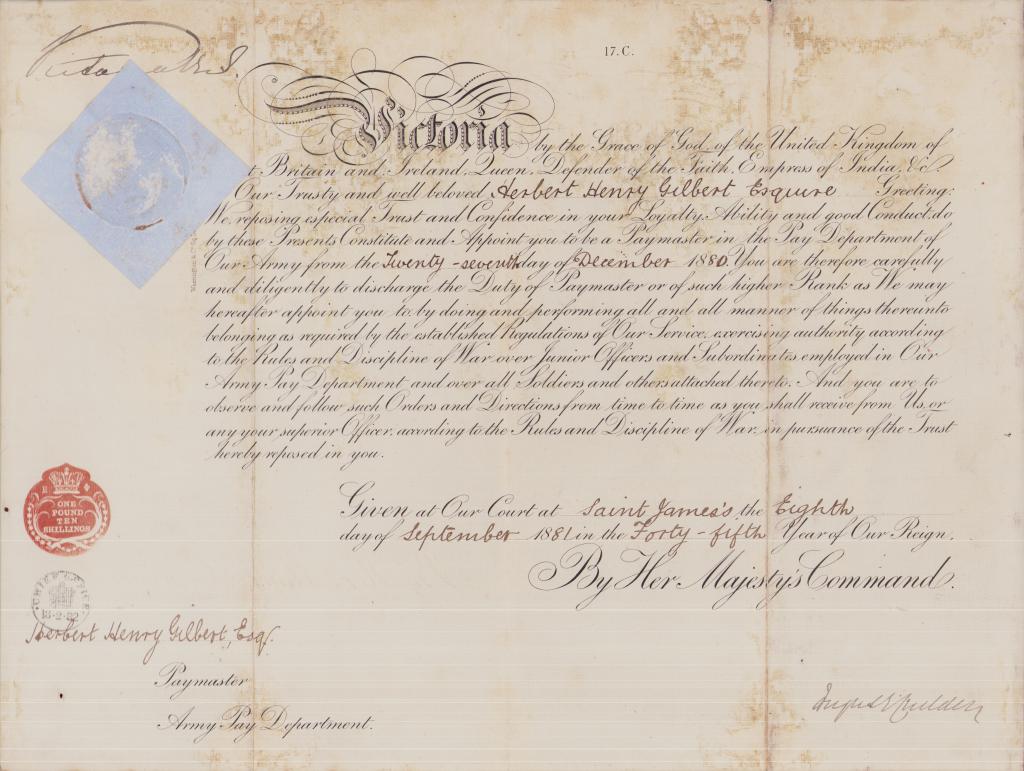 17. C.
Victoria R I.
Victoria by the Grace of God, of the United Kingdom of
t Britain and Ireland, Queen, Defender of the Faith, Empress of India, &c.
Our Trusty and well beloved Herbert Henry Gilbert Esquire Greeting:
We, reposing especial Trust and Confidence in your Loyalty, Ability and good Conduct, do
by these Presents Constitute and Appoint you to be a Paymaster in the Pay Department of
Our Army from the Twenty-seventh day of December 1880. You are therefore carefully
and diligently to discharge the Duty of Paymaster or of such higher Rank as We may
hereafter appoint you to, by doing and performing all and all manner of things thereunto
belonging as required by the established Regulations of Our Service, exercising authority according
to the Rules and Discipline of War over Junior Officers and Subordinates employed in Our
Army Pay Department and over all Soldiers and others attached thereto. And you are to
observe and follow such Orders and Directions from time to time as you shall receive from Us, or
any your superior Officer, according to the Rules and Discipline of War, in pursuance of the Trust
hereby reposed in you.
Given at Our Court at Saint James's, the Eighth
day of September 1881 in the Forty-fifth Year of Our Reign.
By Her Majesty's Command.
ONE
POUND
TEN
SHILLINGS
OFFICE
Herbert Henry Gilbert, Esq.
Paymaster
Army Pay Department.